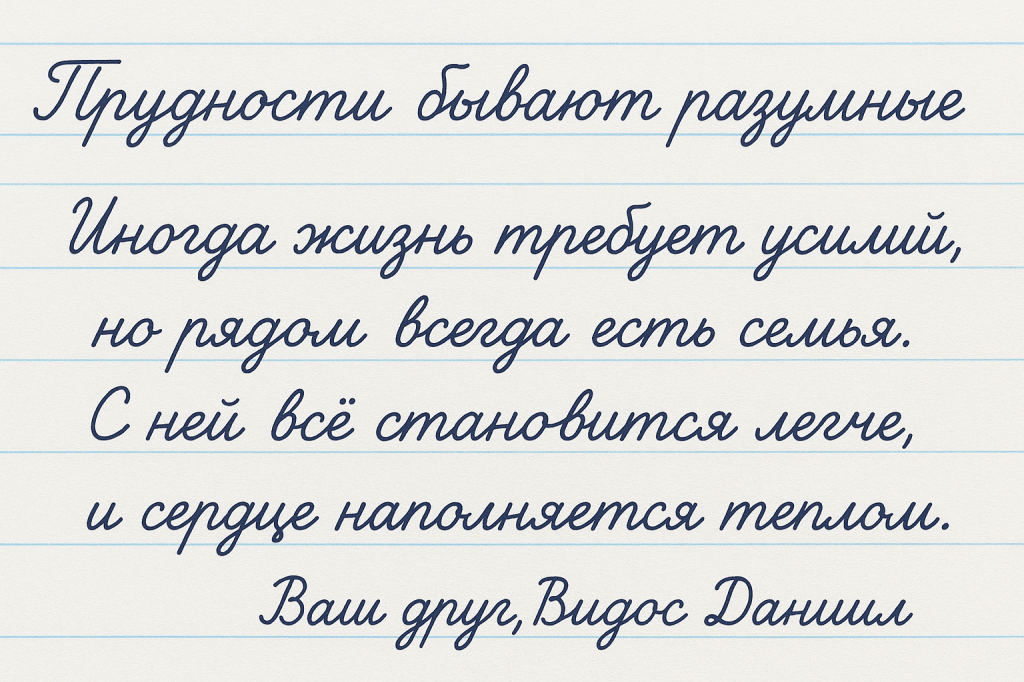 Трудности бывают разумные
Иногда жизнь требует усилий,
но рядом всегда есть семья.
С ней всё становится легче,
и сердце наполняется теплом.
Ваш друг, Видос Даниил